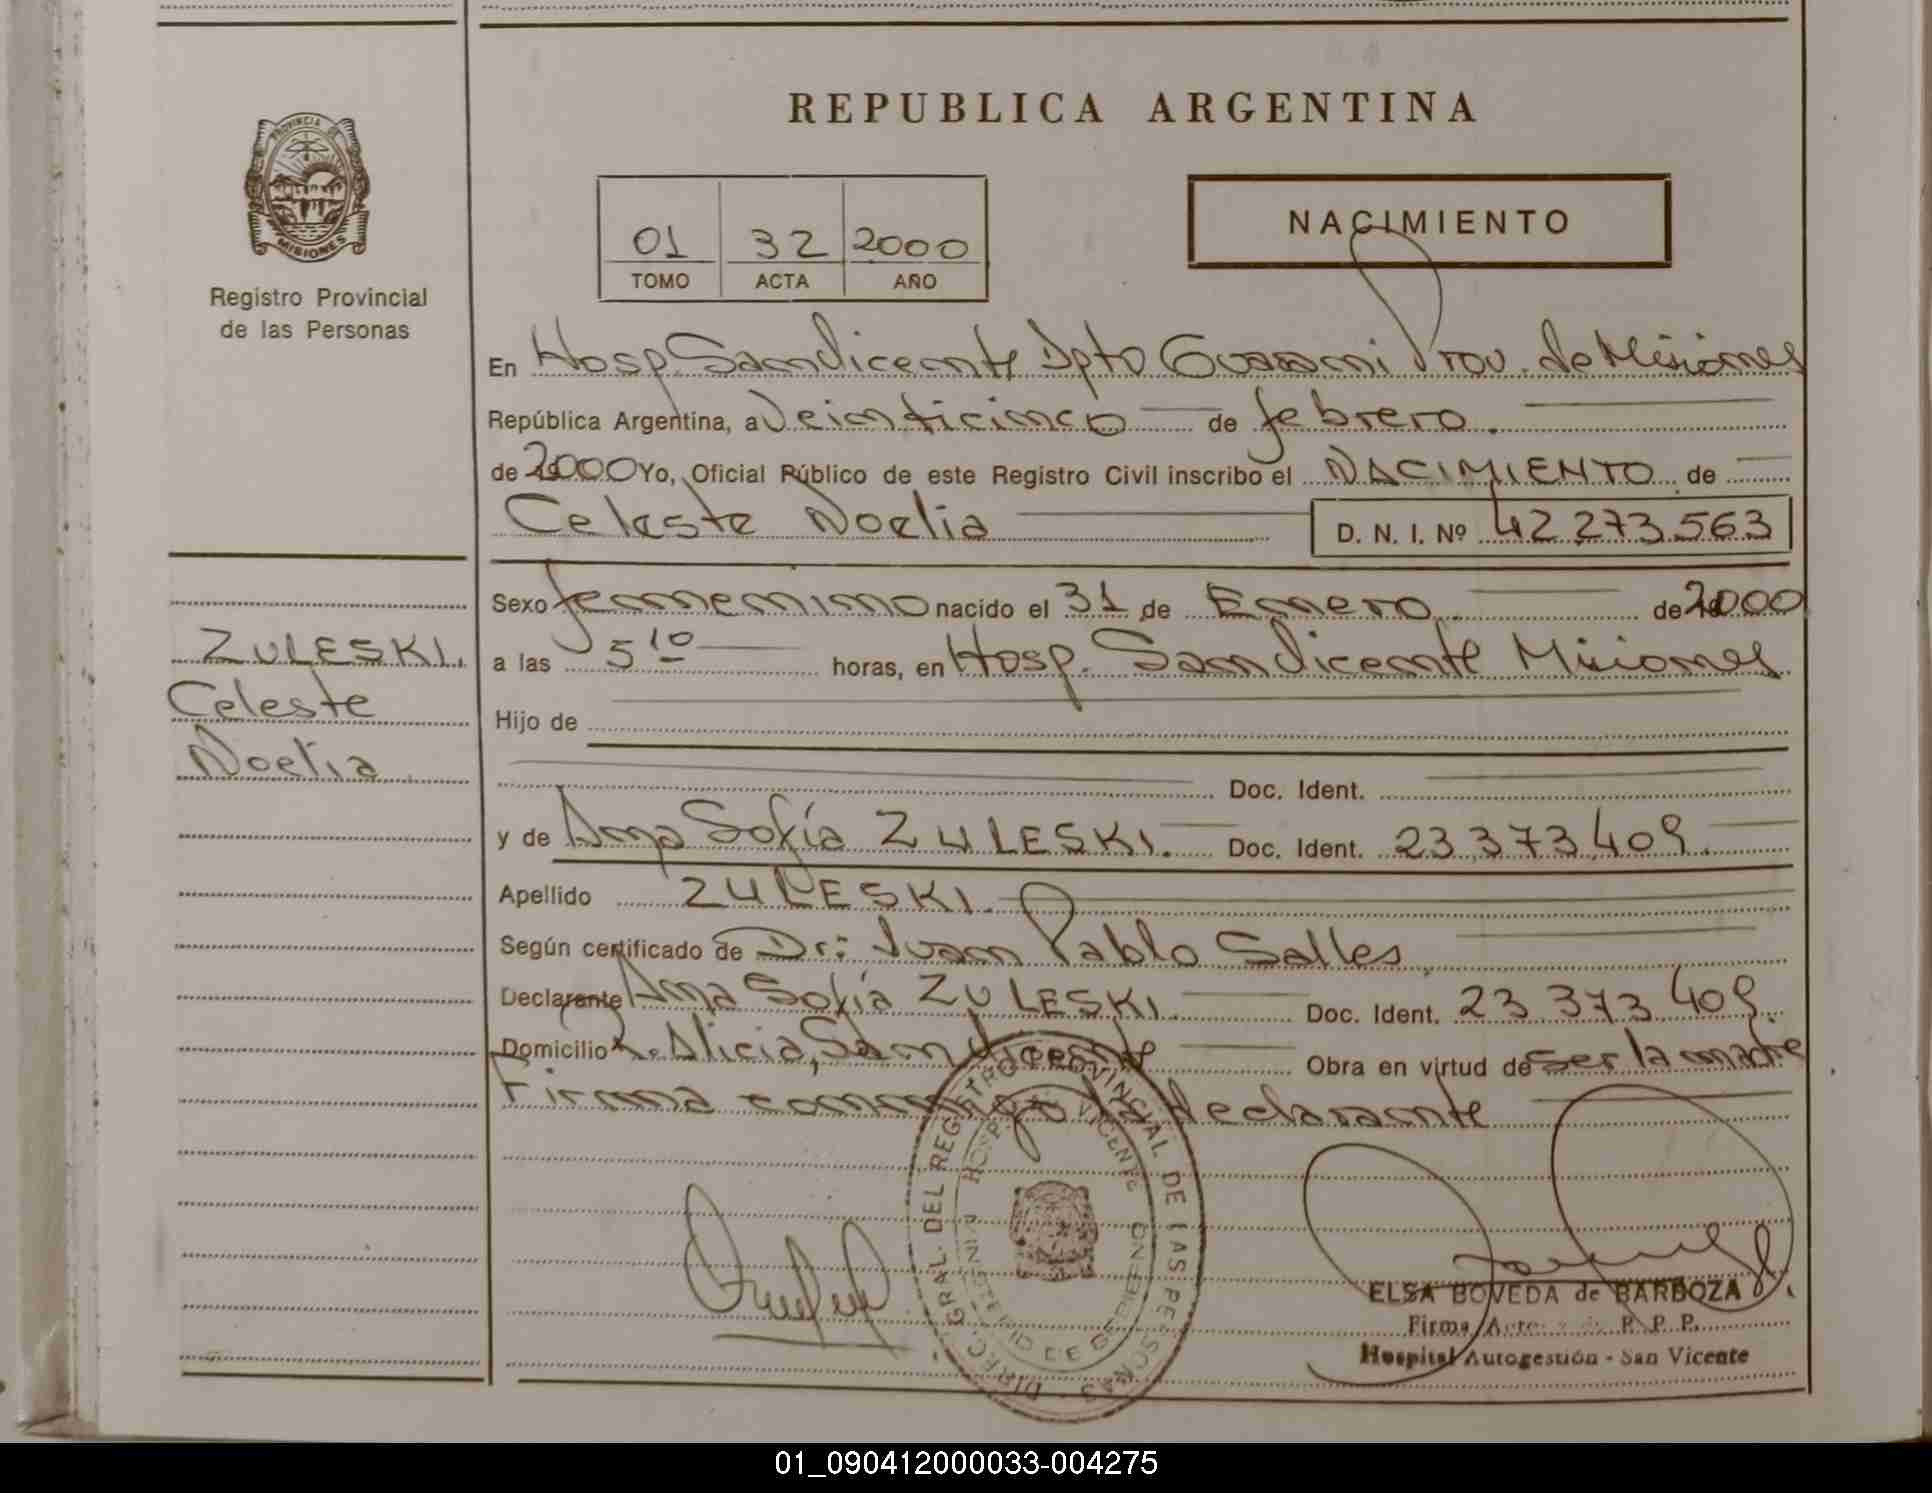 REPUBLICA ARGENTINA
PROVINCIA DE
MISIONES
Registro Provincial
de las Personas
01 32 2000
TOMO ACTA AÑO
NACIMIENTO
En Hosp. San Vicente Dpto Guarani Prov. de Misiones
República Argentina, a Veinticinco de febrero.
de 2000 Yo, Oficial Público de este Registro Civil inscribo el NACIMIENTO de
Celeste Noelia D. N. I. Nº 42.273.563
Sexo femenino nacido el 31 de Enero de 2000
a las 5 10 horas, en Hosp. San Vicente Misiones
Hijo de
Doc. Ident.
y de Ana Sofía ZULESKI. Doc. Ident. 23.373.409.
Apellido ZULESKI.
Según certificado de Dr: Juan Pablo Salles
Declarante Ana Sofía ZULESKI. Doc. Ident. 23.373.409.
Domicilio A. Alicia, San Vicente Obra en virtud de ser la madre
Firma conmigo la declarante
ZULESKI,
Celeste
Noelia
DIREC. GRAL. DEL REGISTRO PROVINCIAL DE LAS PERSONAS
HOSP. VICENTE
ELSA BOVEDA de BARBOZA
Firma R. P. P.
Hospital Autogestión - San Vicente
01_090412000033-004275